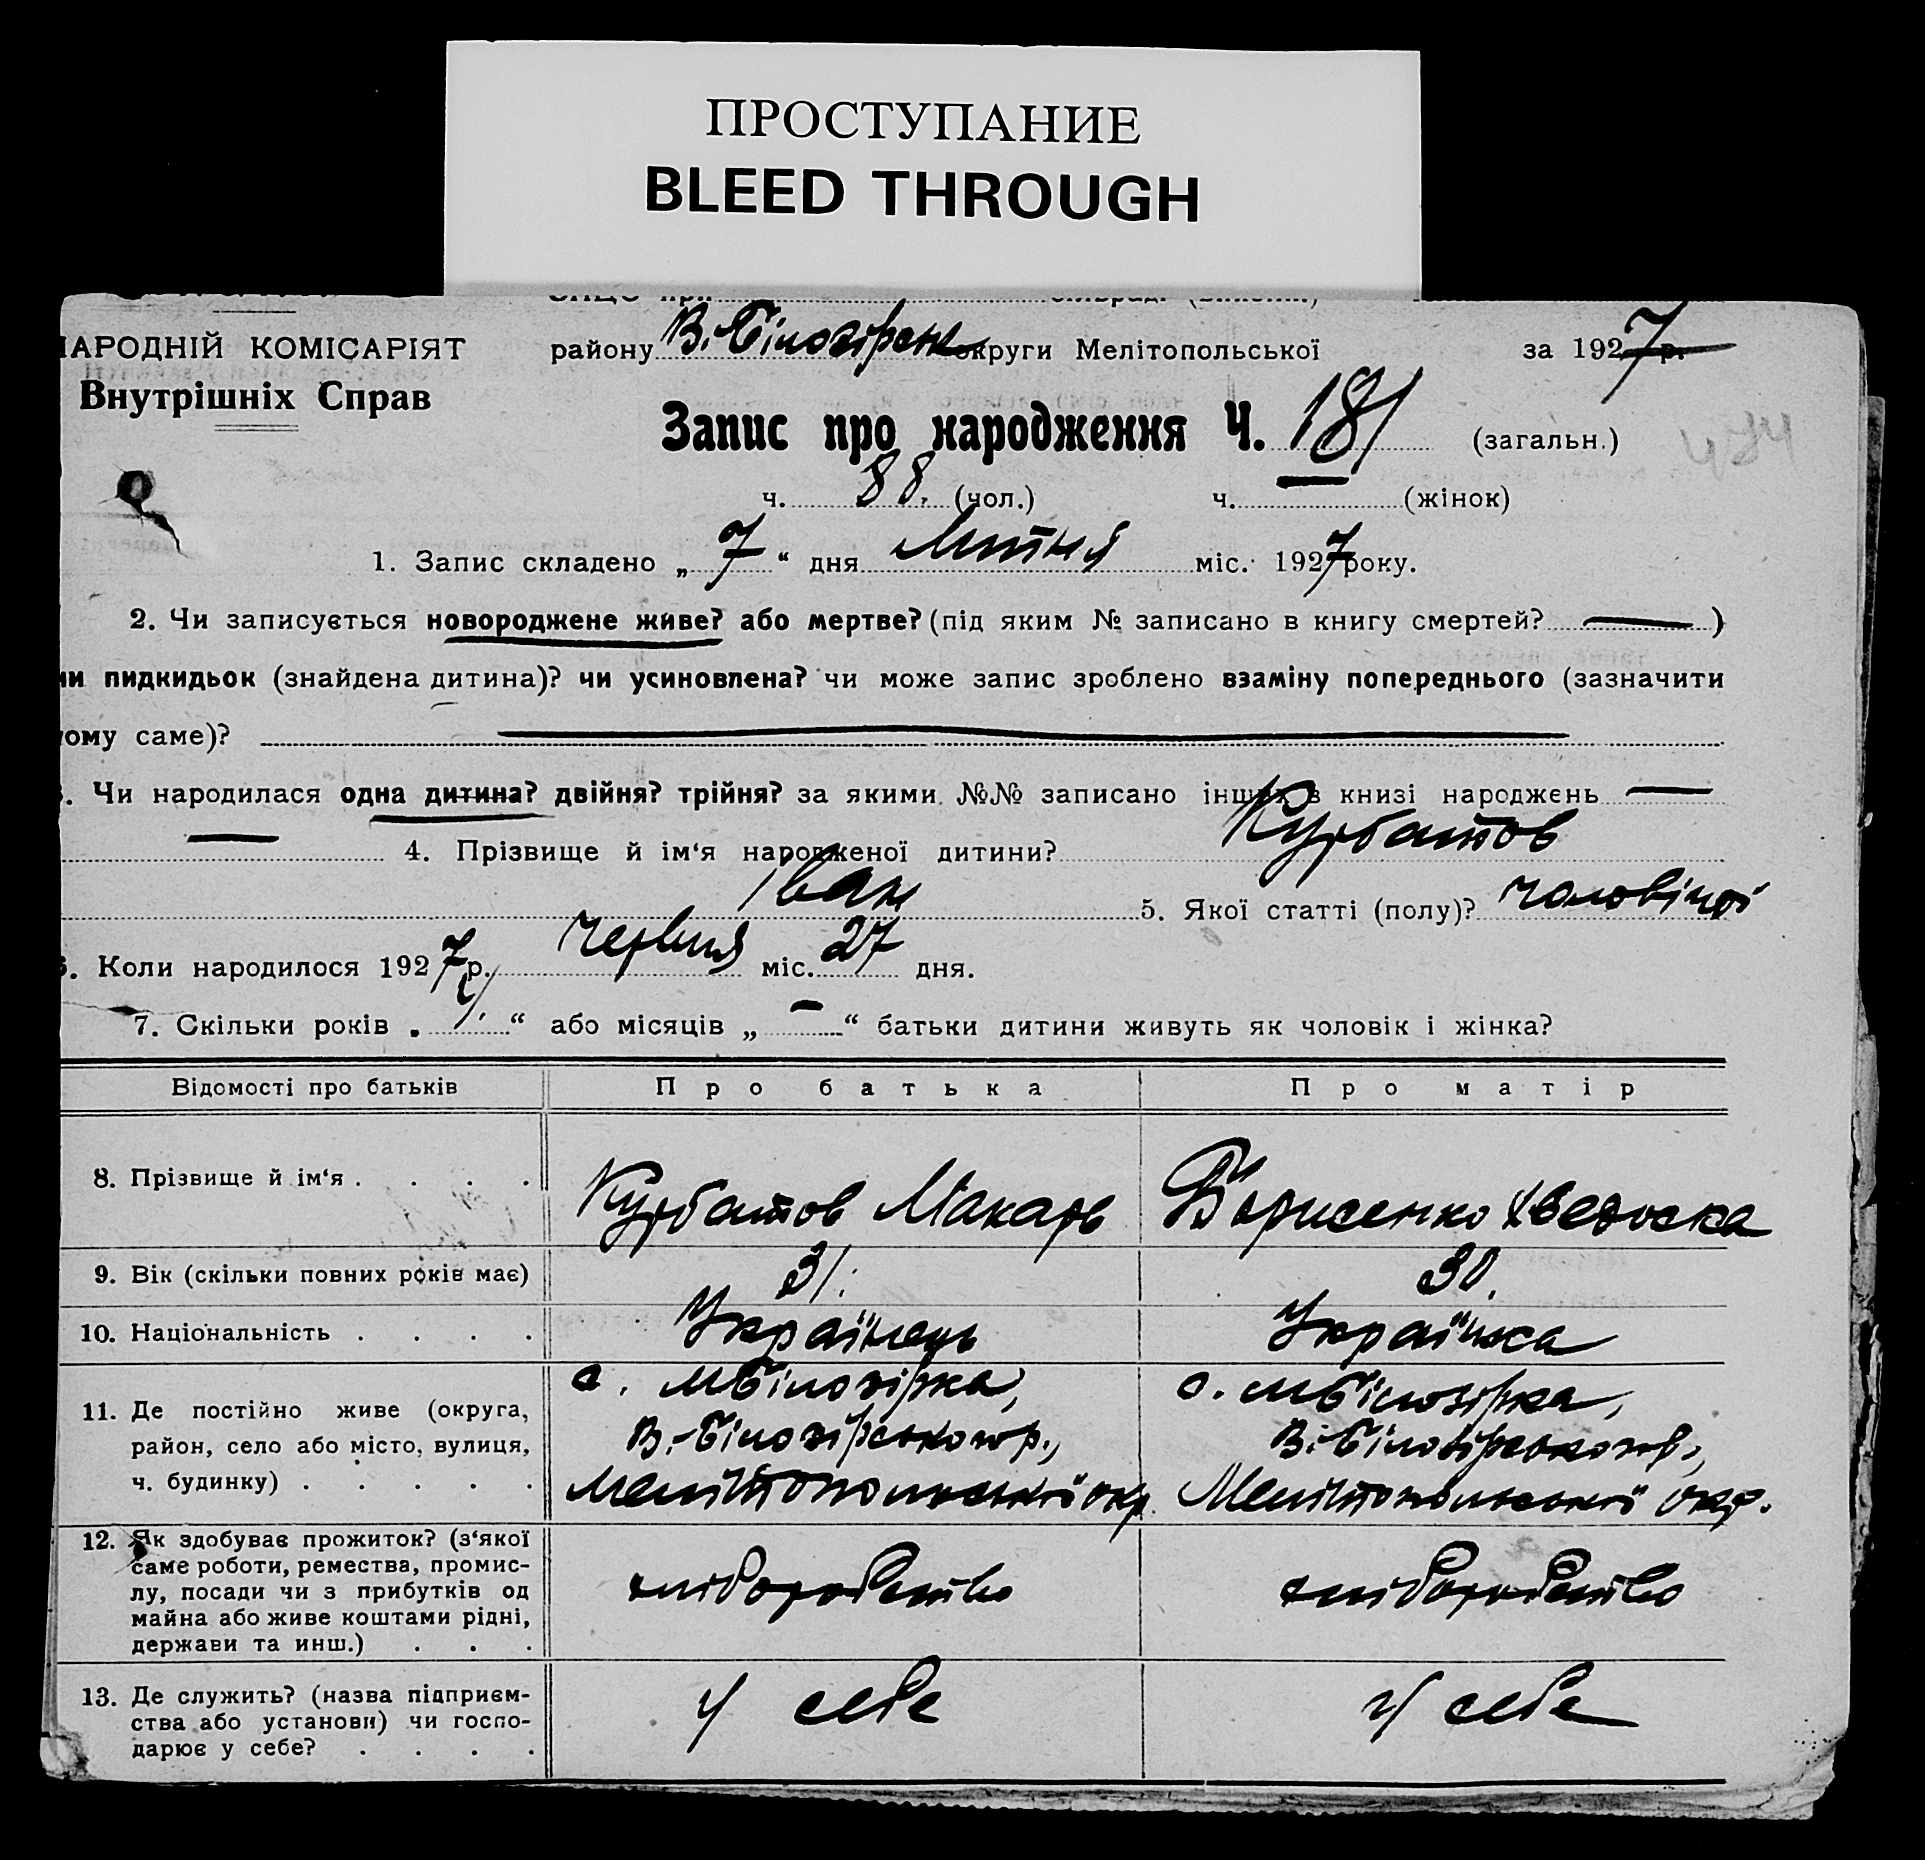 ПРОСТУПАНИЕ
BLEED THROUGH
НАРОДНІЙ КОМІСАРІЯТ
Внутрішніх Справ
району В. Білозірськ округи Мелітопольської за 1927 р.
Запис про народження Ч. 181 (загальн.)
ч. 88. (чол.) ч. — (жінок)
1. Запис складено „ 7 “ дня Липня міс. 1927 року.
2. Чи записується новороджене живе? або мертве? (під яким № записано в книгу смертей? — )
чи пидкидьок (знайдена дитина)? чи усиновлена? чи може запис зроблено взаміну попереднього (зазначити
чому саме)? —
3. Чи народилася одна дитина? двійня? трійня? за якими №№ записано інших в книзі народжень —
— 4. Прізвище й ім‘я народженої дитини? Курбатов
Іван 5. Якої статті (полу)? чоловічої
6. Коли народилося 1927 р. червня міс. 27 дня.
7. Скільки років „ “ або місяців „ — “ батьки дитини живуть як чоловік і жінка?
Відомості про батьків Про батька Про матір
8. Прізвище й ім‘я . . . . Курбатов Макарь Борисенко Хведоска
9. Вік (скільки повних років має) 31. 30.
10. Національність . . . . Українець Українка
11. Де постійно живе (округа, район, село або місто, вулиця, ч. будинку) . . . . .
с. МБілозірка,
В.-Білозірського р.,
Мелітопольської окр.
с. МБілозірка,
В.-Білозірського р.,
Мелітопольської окр.
12. Як здобуває прожиток? (з‘якої
саме роботи, ремества, промис-
лу, посади чи з прибутків од
майна або живе коштами рідні,
держави та инш.) . . .
хліборобство хліборобство
13. Де служить? (назва підприєм-
ства або установи) чи госпо-
дарює у себе? . . . .
у себе у себе